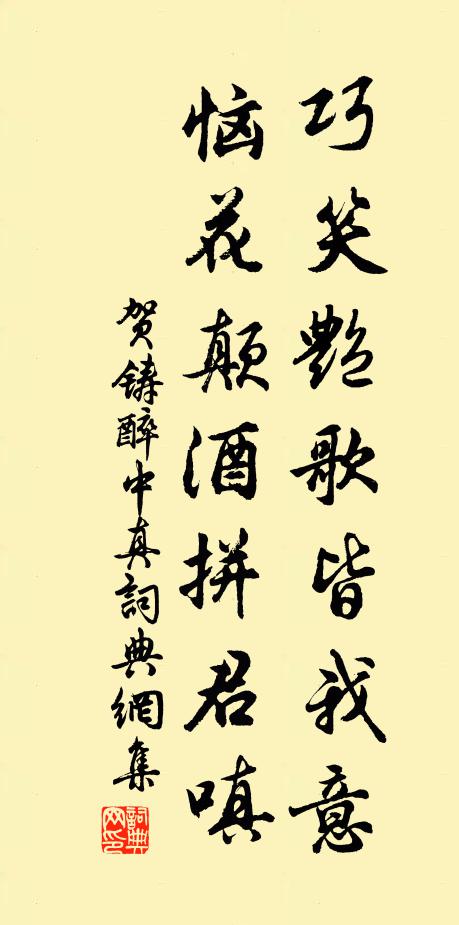 巧笑艷歌皆我意
恼花颠酒拼君嗔
贺铸醉中真詞典網集
詞典网印